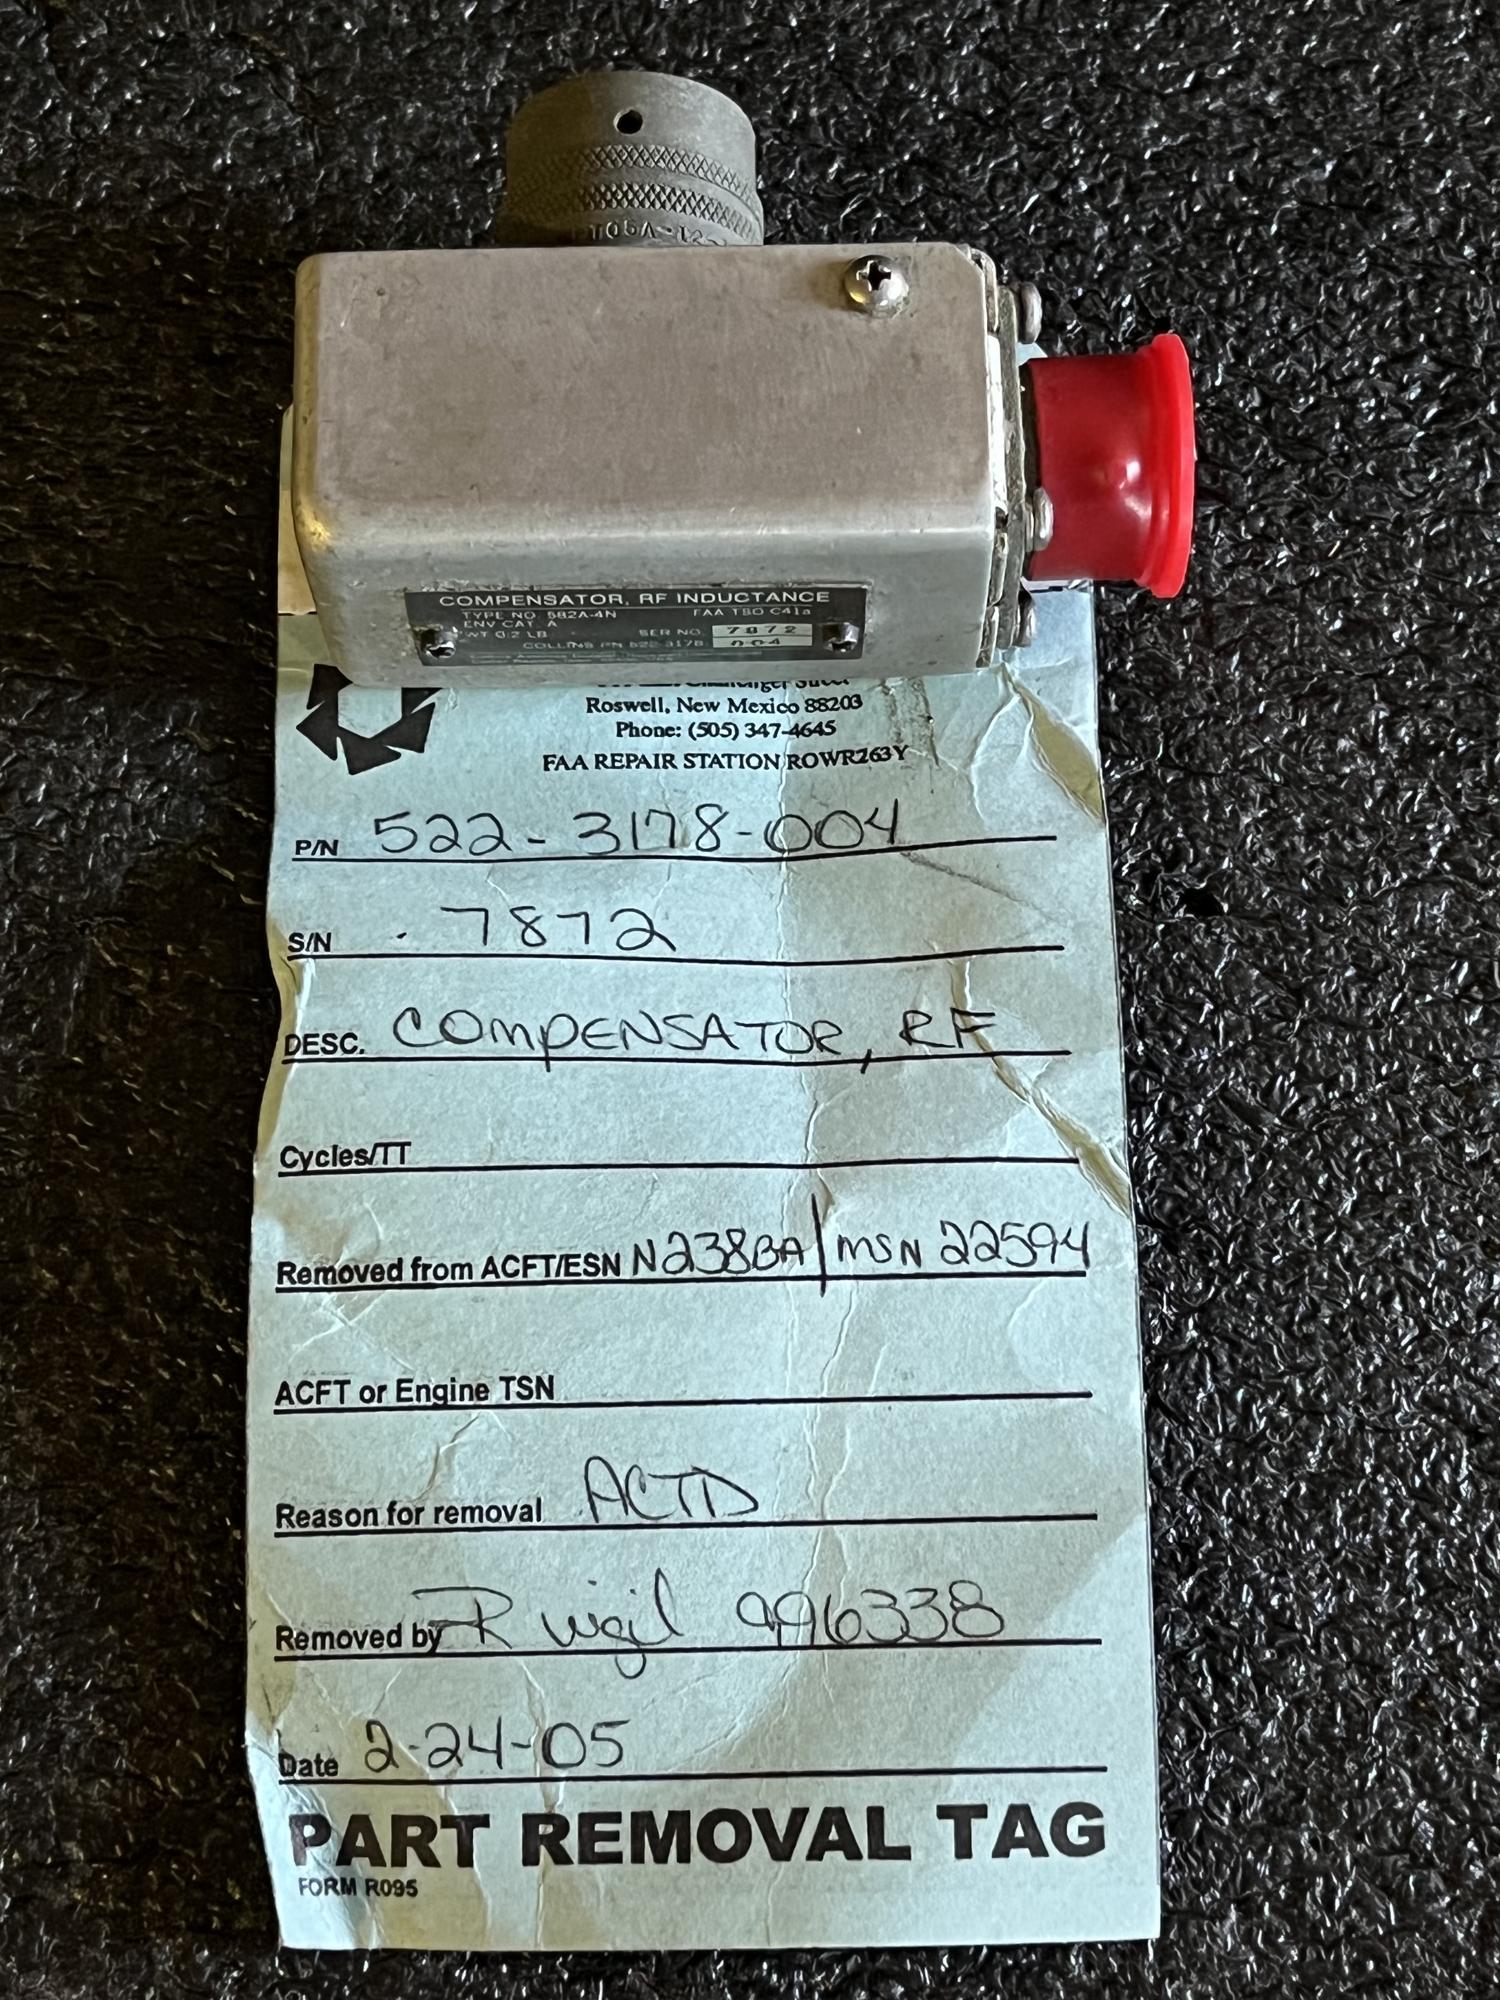 COMPENSATOR, RF INDUCTANCE
TYPE NO. 582A-4N FAA TSO C41a
ENV CAT. A
WT 0.2 LB SER NO. 7872
COLLINS PN 522-3178 004
Roswell, New Mexico 88203
Phone: (505) 347-4645
FAA REPAIR STATION ROWR263Y
P/N 522-3178-004
S/N 7872
DESC. COMPENSATOR, RF
Cycles/TT
Removed from ACFT/ESN N238BA/MSN 22594
ACFT or Engine TSN
Reason for removal ACTD
Removed by R Vigil 996338
Date 2-24-05
PART REMOVAL TAG
FORM R095